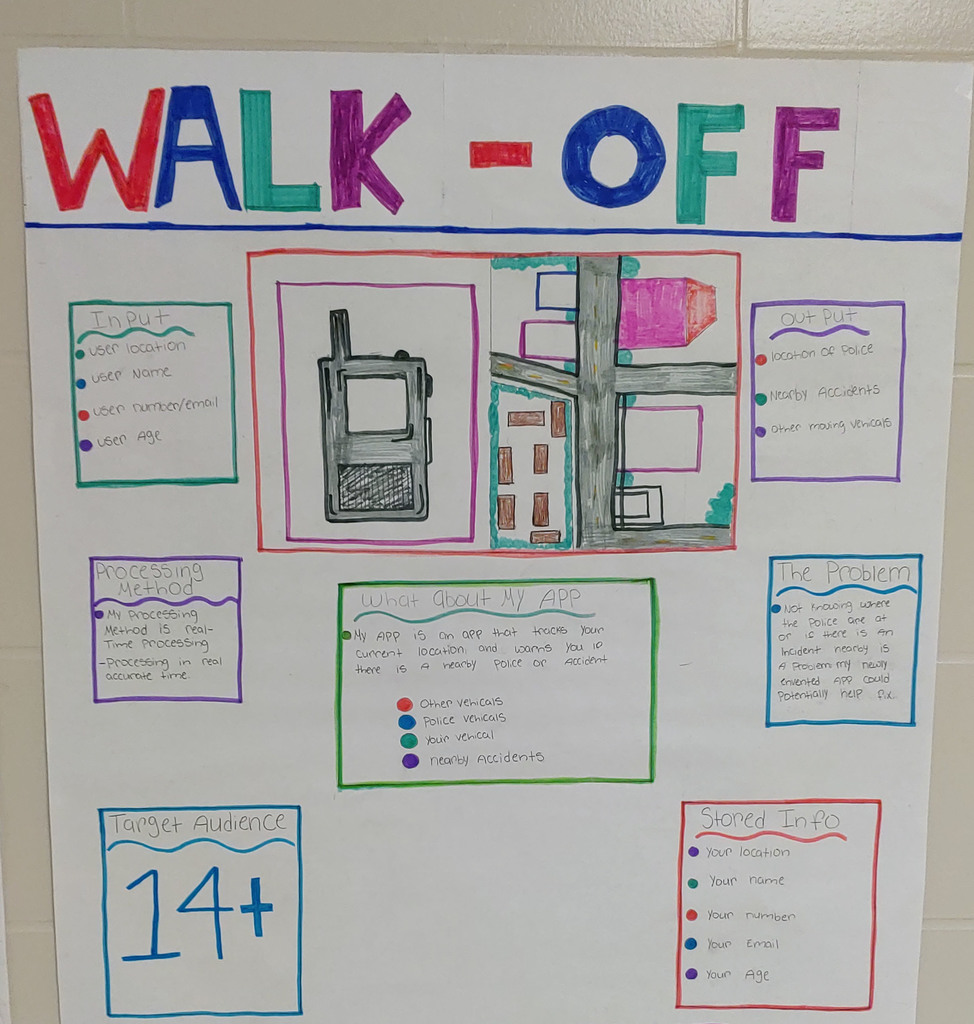 WALK-OFF
Input
user location
user Name
user number/email
user Age
Output
location of Police
Nearby Accidents
Other moving vehicals
Processing
Method
My Processing
Method is real-
Time Processing
-Processing in real
accurate time.
What about My APP
My APP is an app that tracks your
current location, and warns you if
there is a nearby Police or Accident
Other vehicals
Police vehicals
Your vehical
nearby Accidents
The Problem
Not knowing where
the Police are at
or is there is an
Incident nearby is
a Problem my newly
envented APP could
Potentially help fix.
Target Audience
14+
Stored Info
Your location
Your name
Your number
Your Email
Your Age